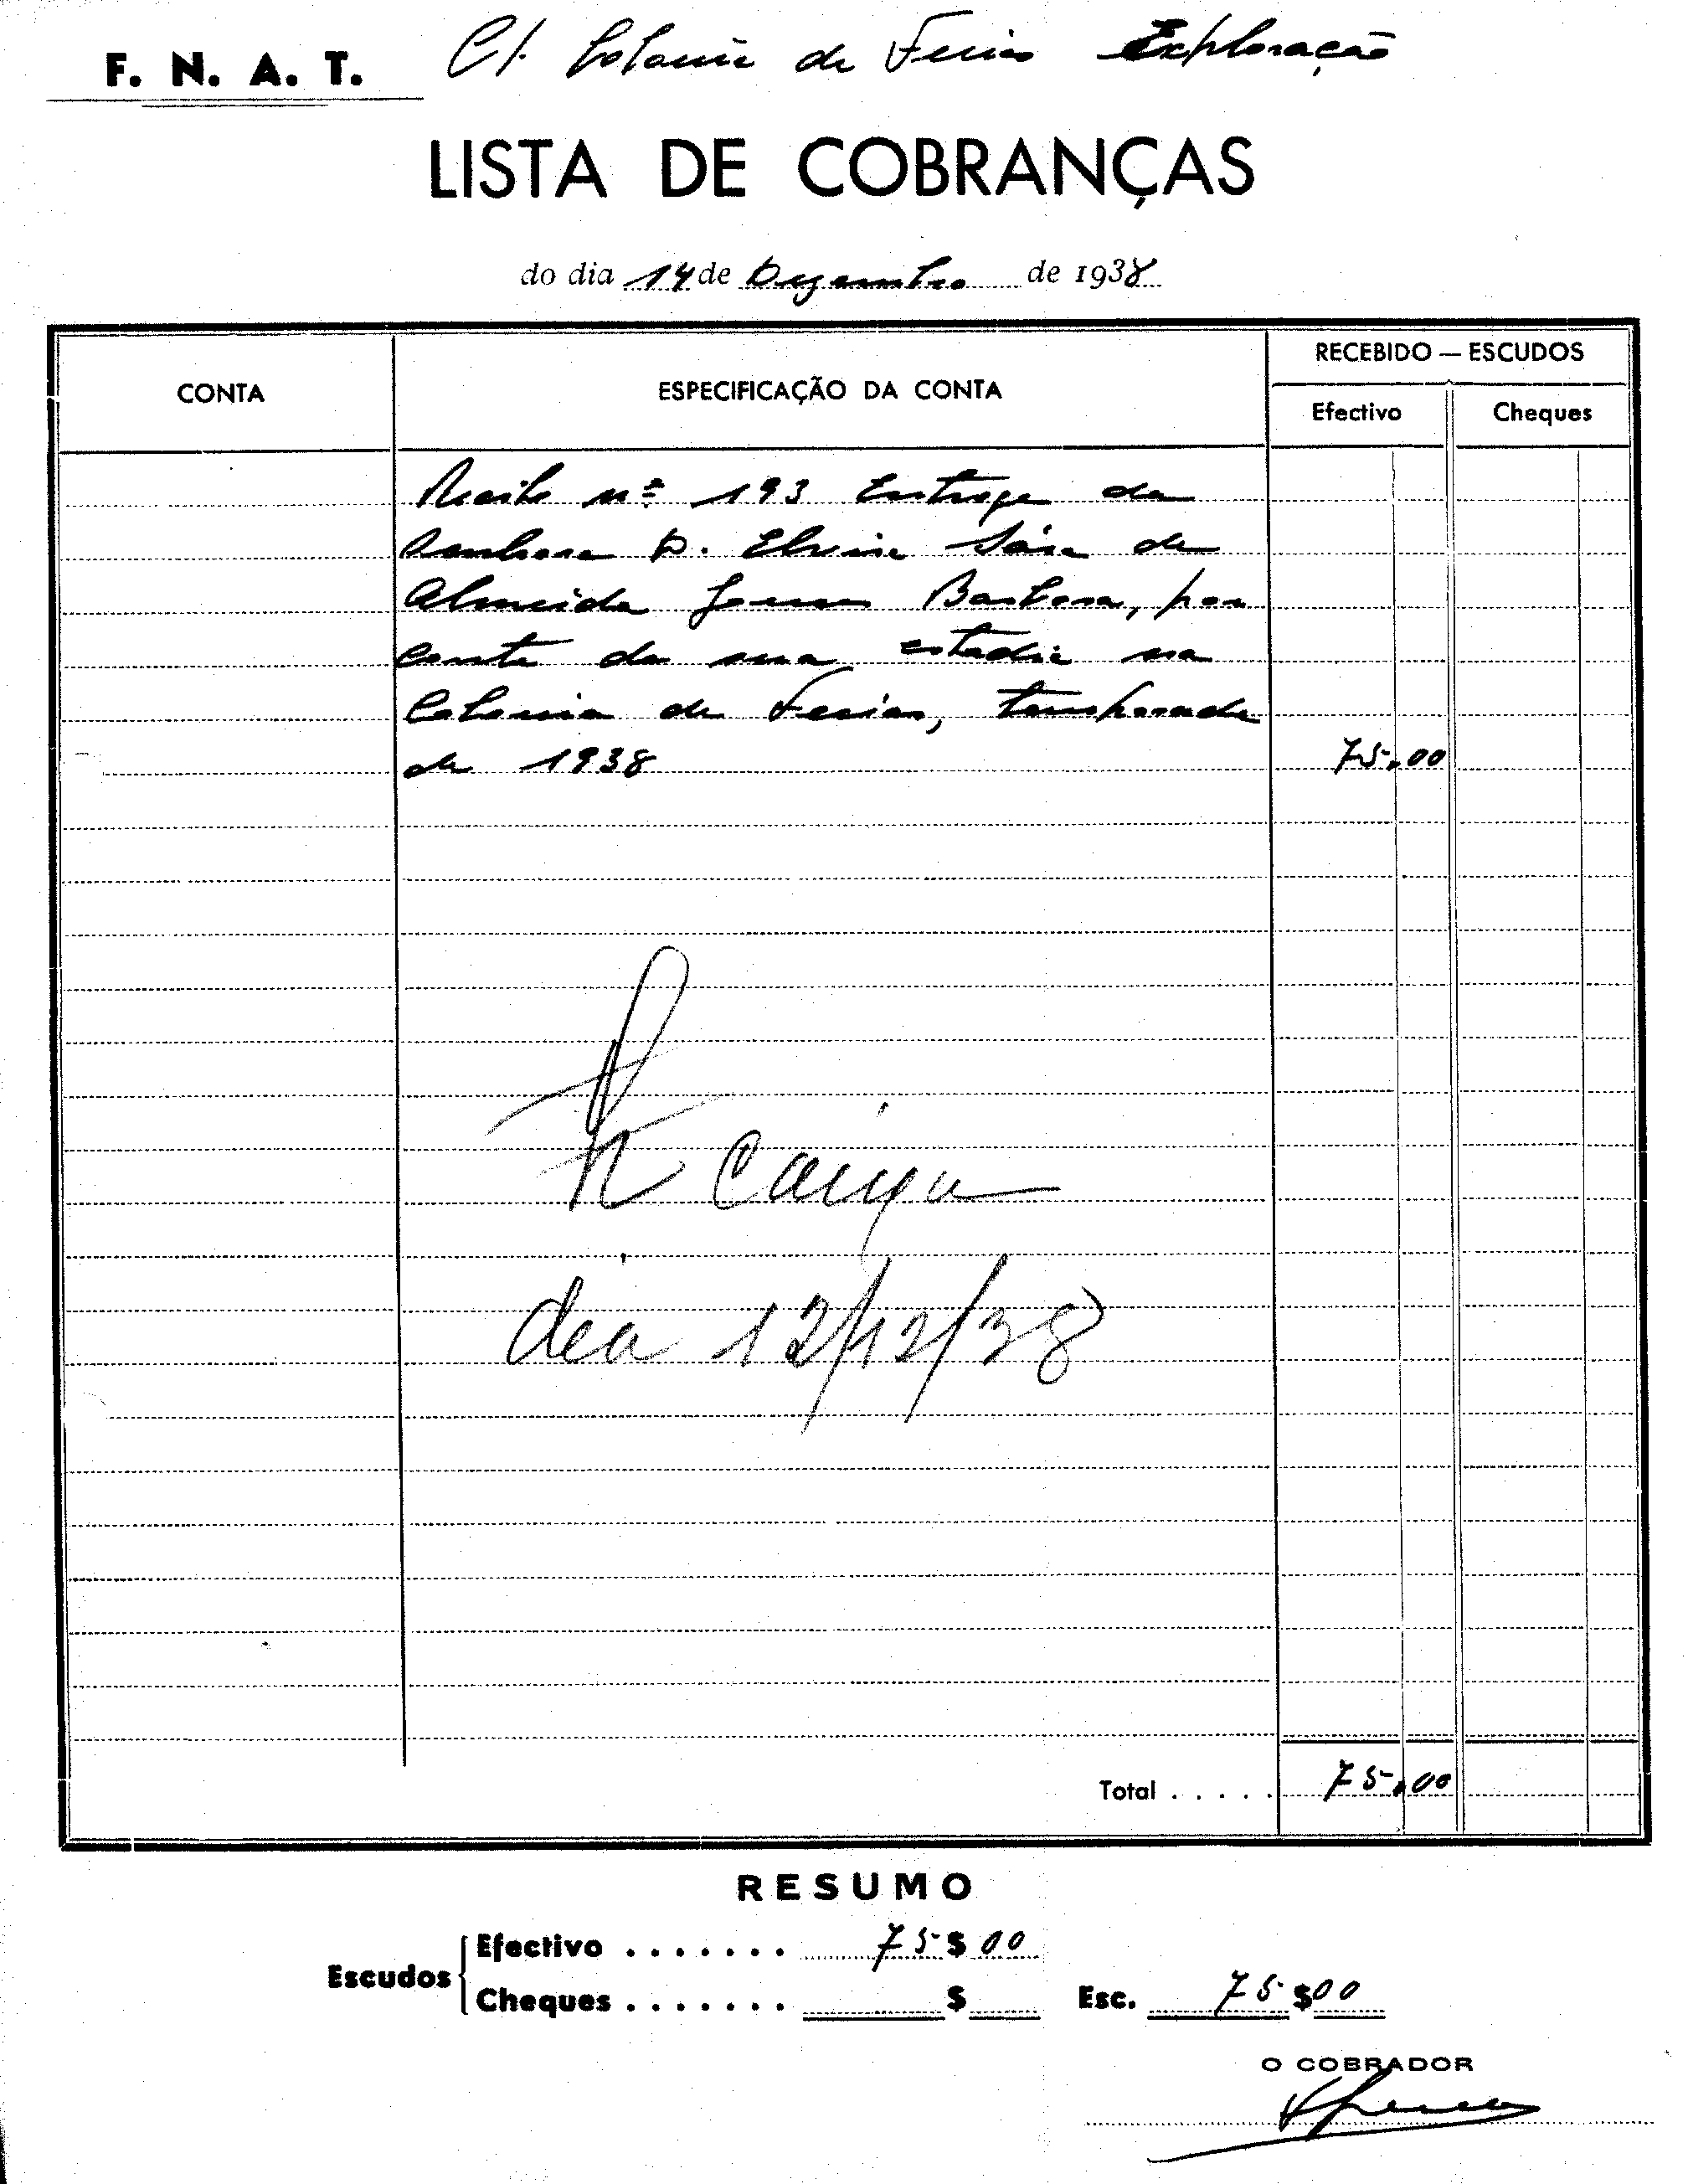 F. N. A. T. C/. Colonia de Ferias Exploração
LISTA DE COBRANÇAS
do dia 14 de Dezembro de 1938
CONTA ESPECIFICAÇÃO DA CONTA RECEBIDO — ESCUDOS
Efectivo Cheques
Recibo nº 193 Entrega da
senhora D. Elvira Sára de
Almeida Barbosa, por
conta da sua estadia na
Colonia de Ferias, temporada
de 1938 75.00
Caixa
dia 12/12/38
Total . . . . . 75.00
RESUMO
Escudos Efectivo . . . . . . . 75 $ 00
Cheques . . . . . . . $ Esc. 75 $00
O COBRADOR